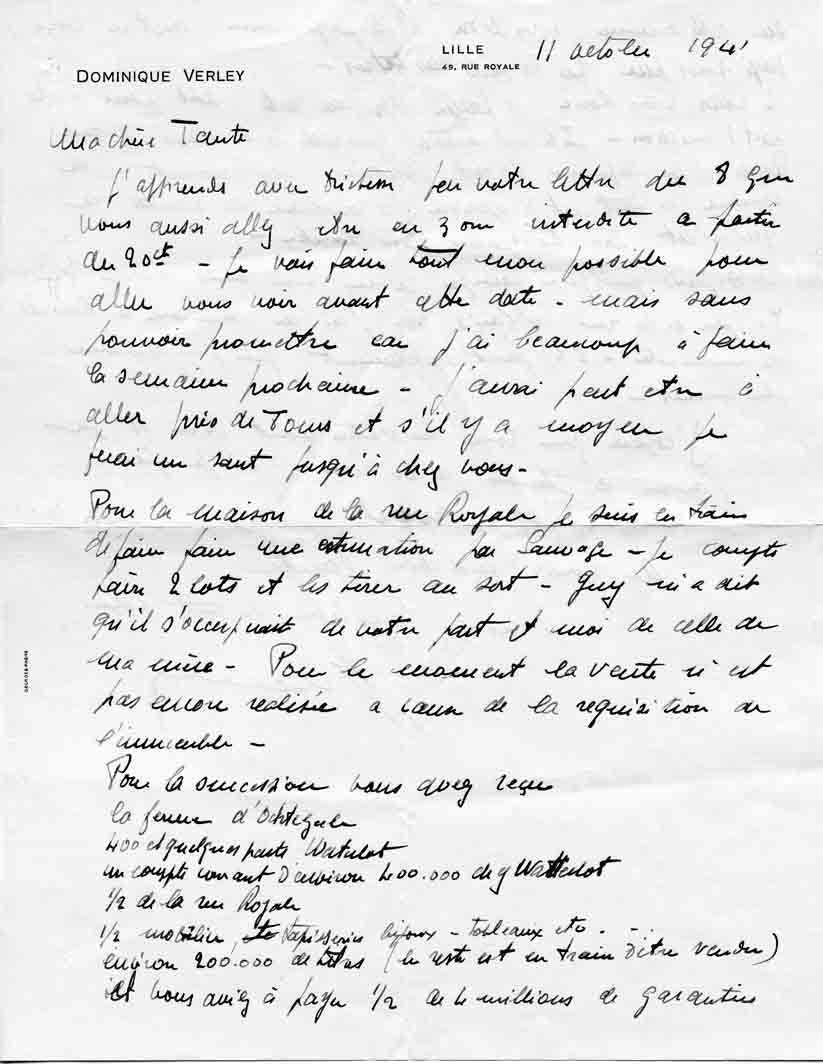 DOMINIQUE VERLEY
LILLE
49, RUE ROYALE
11 octobre 1941
Ma chère Tante
J'apprends avec tristesse par votre lettre du 8 que
vous aussi allez être en zone interdite a partir
du 20 ct - Je vais faire tout mon possible pour
aller vous voir avant cette date - mais sans
pouvoir promettre car j'ai beaucoup à faire
la semaine prochaine - J'aurai peut etre à
aller près de Tours et s'il y a moyen je
ferai un saut jusqu'à chez vous -
Pour la maison de la rue Royale je suis en train
de faire faire une estimation par Sauvage - Je compte
faire 2 lots et les tirer au sort - Guy m'a dit
qu'il s'occupait de votre part et moi de celle de
ma mère - Pour le moment la vente n'est
pas encore realisée a cause de la requisition de
l'immeuble -
Pour la succession vous avez reçu
la ferme d'
400 et quelques parts Watrelot
un compte courant d'environ 400.000 de chez Wattrelot
1/2 de la rue Royale
1/2 mobilier, tapisseries bijoux - tableaux etc -
environ 200.000 de titres (le reste est en train d'être vendu)
et vous aviez à payer 1/2 de 4 millions de garanties